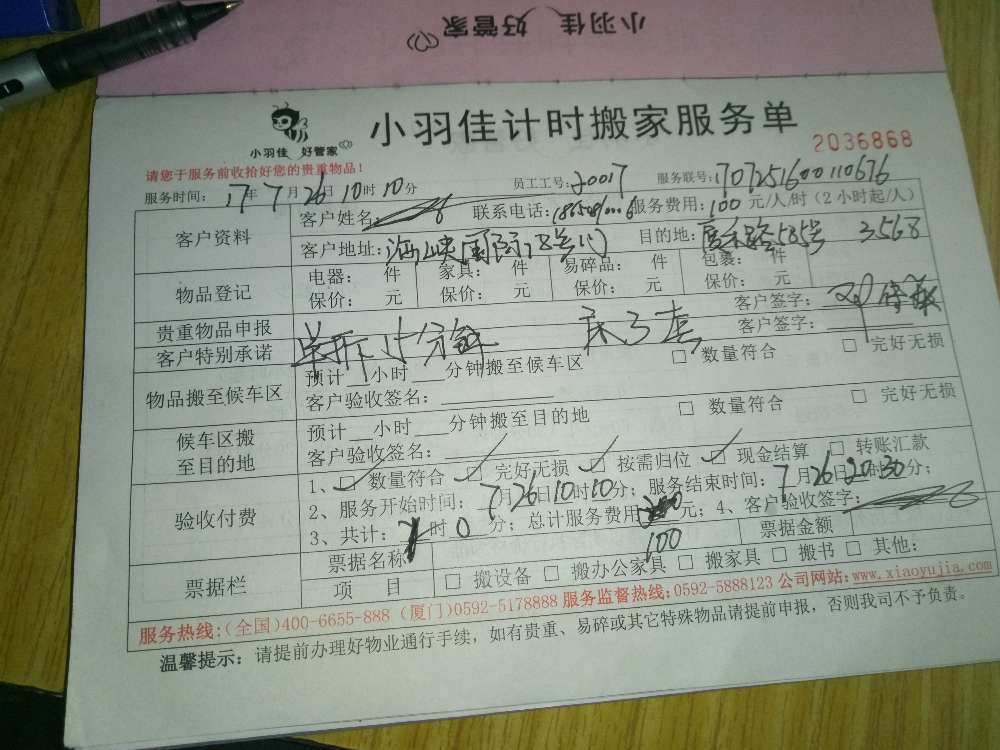 小羽佳 好管家
小羽佳 好管家
小羽佳计时搬家服务单
2036868
请您于服务前收拾好您的贵重物品！
服务时间：17年7月26日10时10分 员工工号：20017 服务联号：17072516000110676
客户资料 客户姓名： 联系电话： 服务费用：100元/人/时（2小时起/人）
客户地址：海峡国际 目的地： 585号 3568
物品登记 电器： 件 家具： 件 易碎品： 件 包裹： 件
保价： 元 保价： 元 保价： 元 保价： 元
贵重物品申报 客户签字：
客户特别承诺 分钟 客户签字：
物品搬至候车区 预计 小时 分钟搬至候车区 □ 数量符合 □ 完好无损
客户验收签名：
候车区搬至目的地 预计 小时 分钟搬至目的地 □ 数量符合 □ 完好无损
客户验收签名：
验收付费 1、☑ 数量符合 ☑ 完好无损 ☑ 按需归位 ☑ 现金结算 □ 转账汇款
2、服务开始时间：7月26日10时10分；服务结束时间：7月26日 时30分；
3、共计：1时0分；总计服务费用 元；4、客户验收签字：
100
票据栏 票据名称 票据金额
项 目 □ 搬设备 □ 搬办公家具 □ 搬家具 □ 搬书 □ 其他：
服务热线：(全国)400-6655-888 (厦门)0592-5178888 服务监督热线：0592-5888123 公司网站：www.xiaoyujia.com
温馨提示：请提前办理好物业通行手续，如有贵重、易碎或其它特殊物品请提前申报，否则我司不予负责。